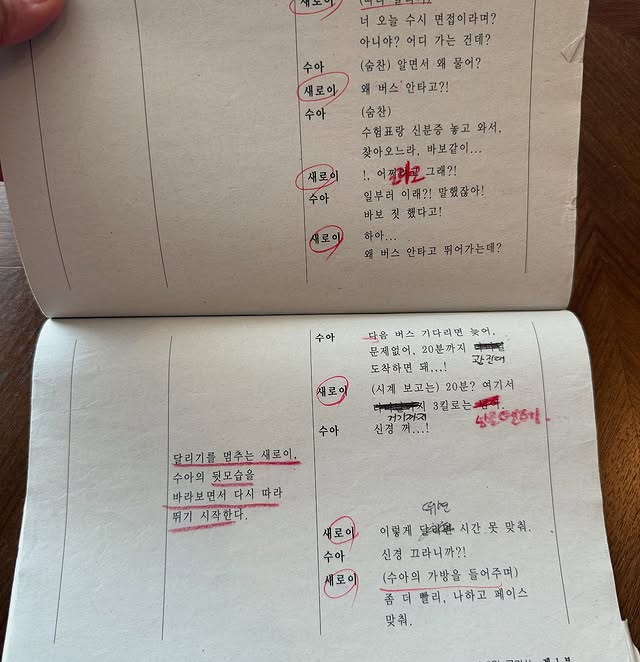 새로이
너 오늘 수시 면접이라며?
아니야? 어디 가는 건데?
수아 (숨찬) 알면서 왜 물어?
새로이 왜 버스 안타고?!
수아 (숨찬)
수험표랑 신분증 놓고 와서,
찾아오느라, 바보같이...
새로이 !, 어쩌려고 그래?!
수아 일부러 이래?! 말했잖아!
바보 짓 했다고!
새로이 하아...
왜 버스 안타고 뛰어가는데?
수아 다음 버스 기다리면 늦어,
문제없어, 20분까지
도착하면 돼,..!
새로이 (시계 보고는) 20분? 여기서
3킬로는
거기까지
수아 신경 꺼...!
달리기를 멈추는 새로이,
수아의 뒷모습을
바라보면서 다시 따라
뛰기 시작한다.
뛰면
새로이 이렇게 시간 못 맞춰.
수아 신경 끄라니까?!
새로이 (수아의 가방을 들어주며)
좀 더 빨리, 나하고 페이스
맞춰.